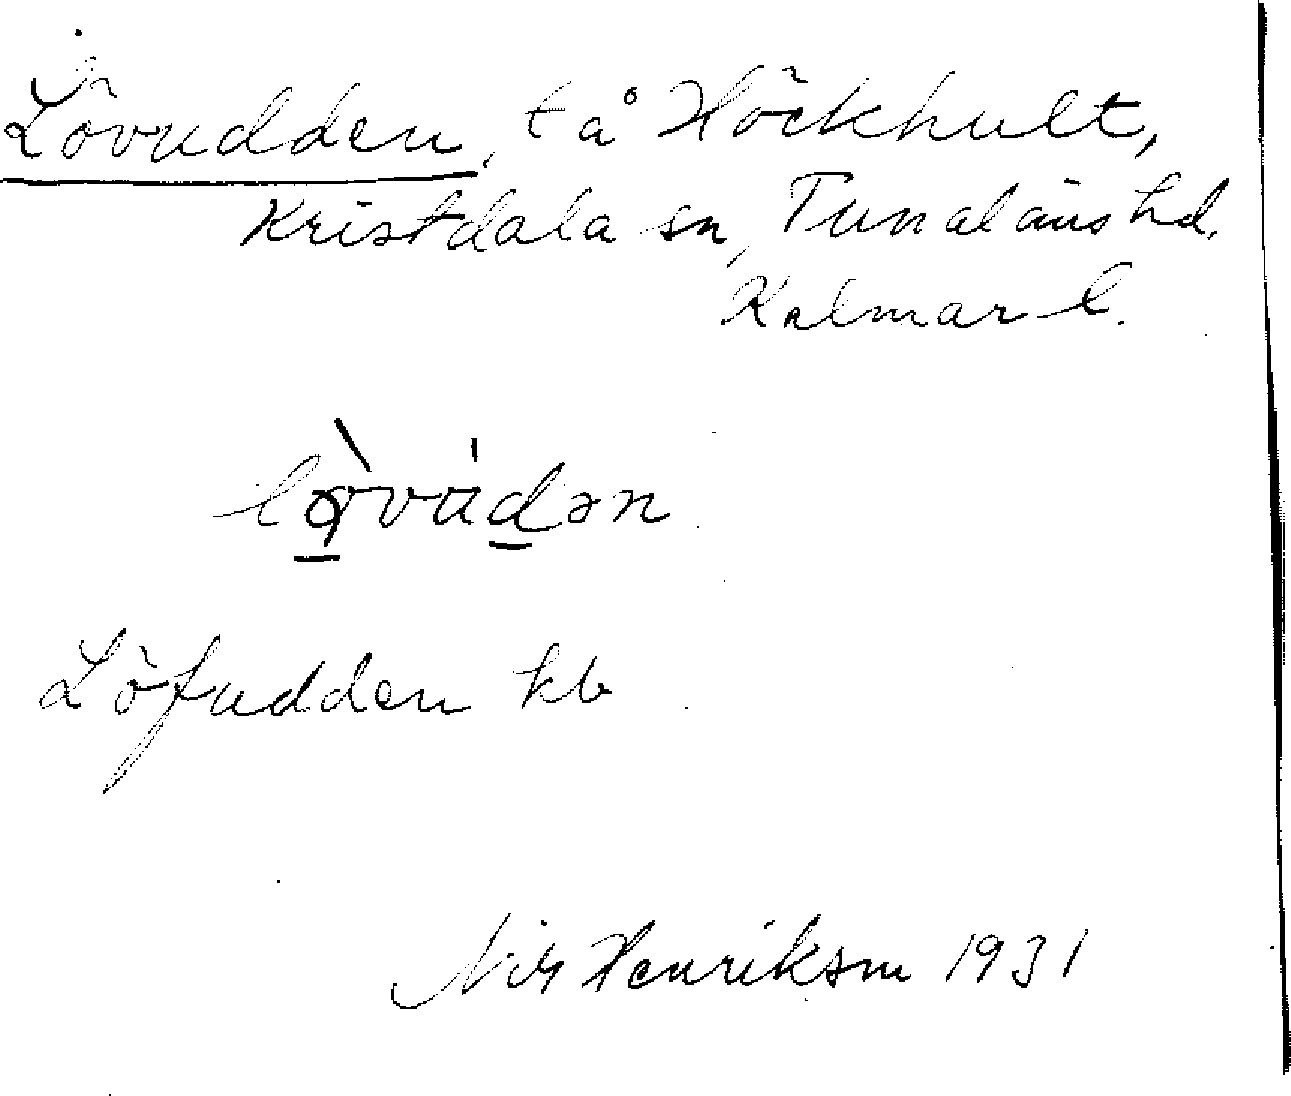 Lövudden, t å Höckhult,
Kristdala sn, Tunaläns hd.
Kalmar l.
Löfudden kb
Nils Henriksson 1931